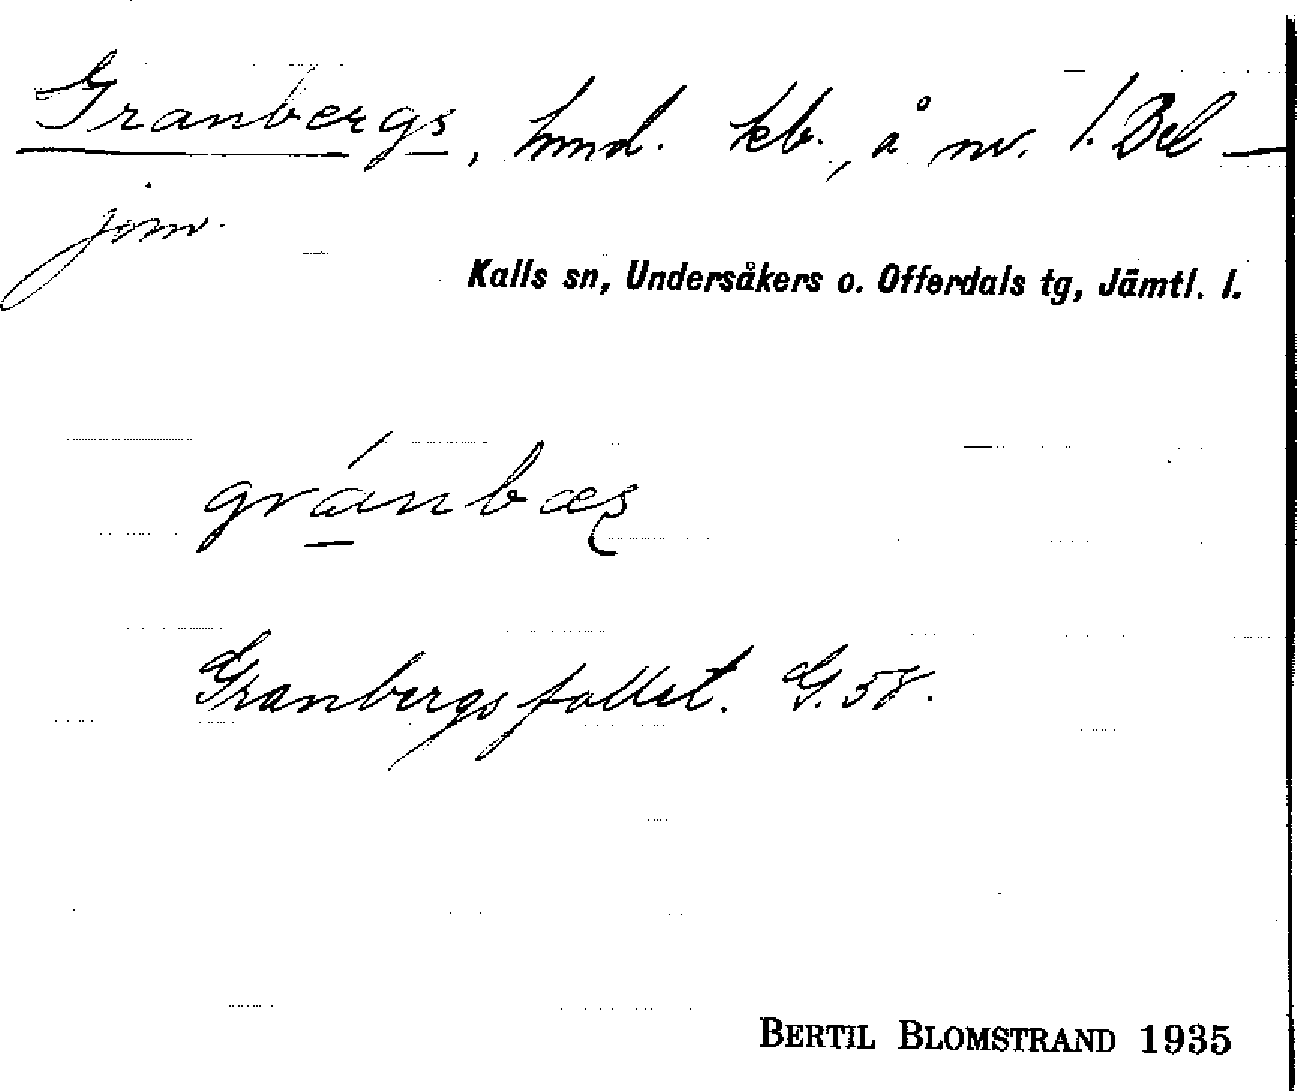 Granbergs, hmd. kb., å nv. l. Bel-
jom.
Kalls sn, Undersåkers o. Offerdals tg, Jämtl. l.
gránbæs
Granbergsfallet. G. 58.
BERTIL BLOMSTRAND 1935